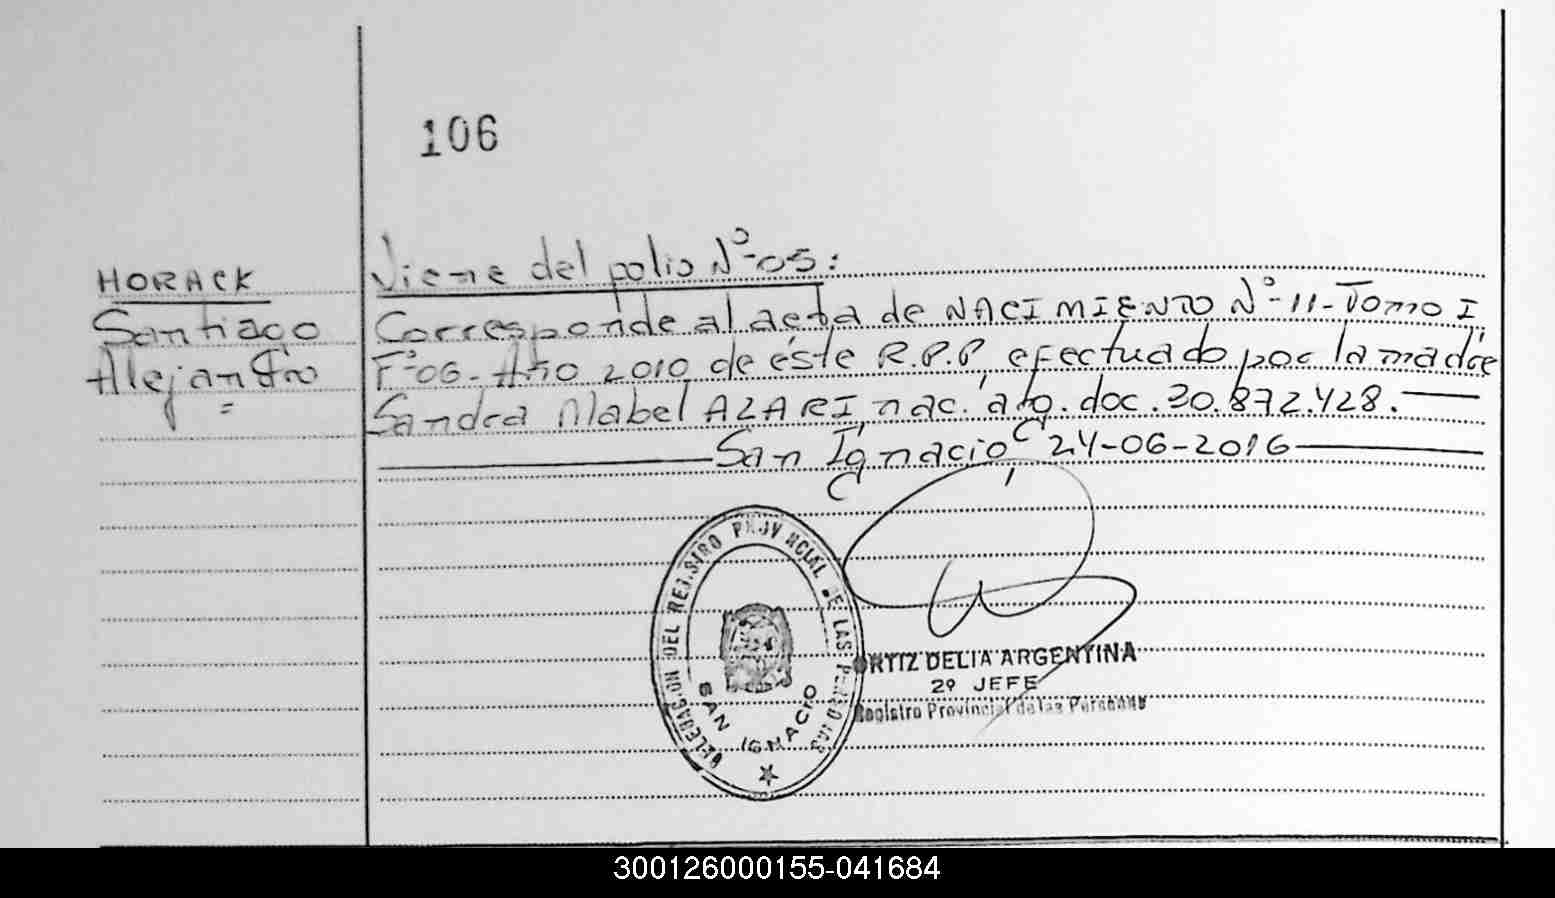 106
HORACK
Santiago
Alejandro
=
Viene del folio Nº-05:
Corresponde al acta de NACIMIENTO Nº-11-Tomo I,
Fº06-Año 2010, de éste R.P.P, efectuado por la madre
Sandra Mabel AZARI, nac. atg. doc. 20.872.428.
San Ignacio, 24-06-2016
DELEGACION DEL REGISTRO PROVINCIAL DE LAS PERSONAS
SAN IGNACIO
ORTIZ DELIA ARGENTINA
2º JEFE
Registro Provincial de las Personas
300126000155-041684